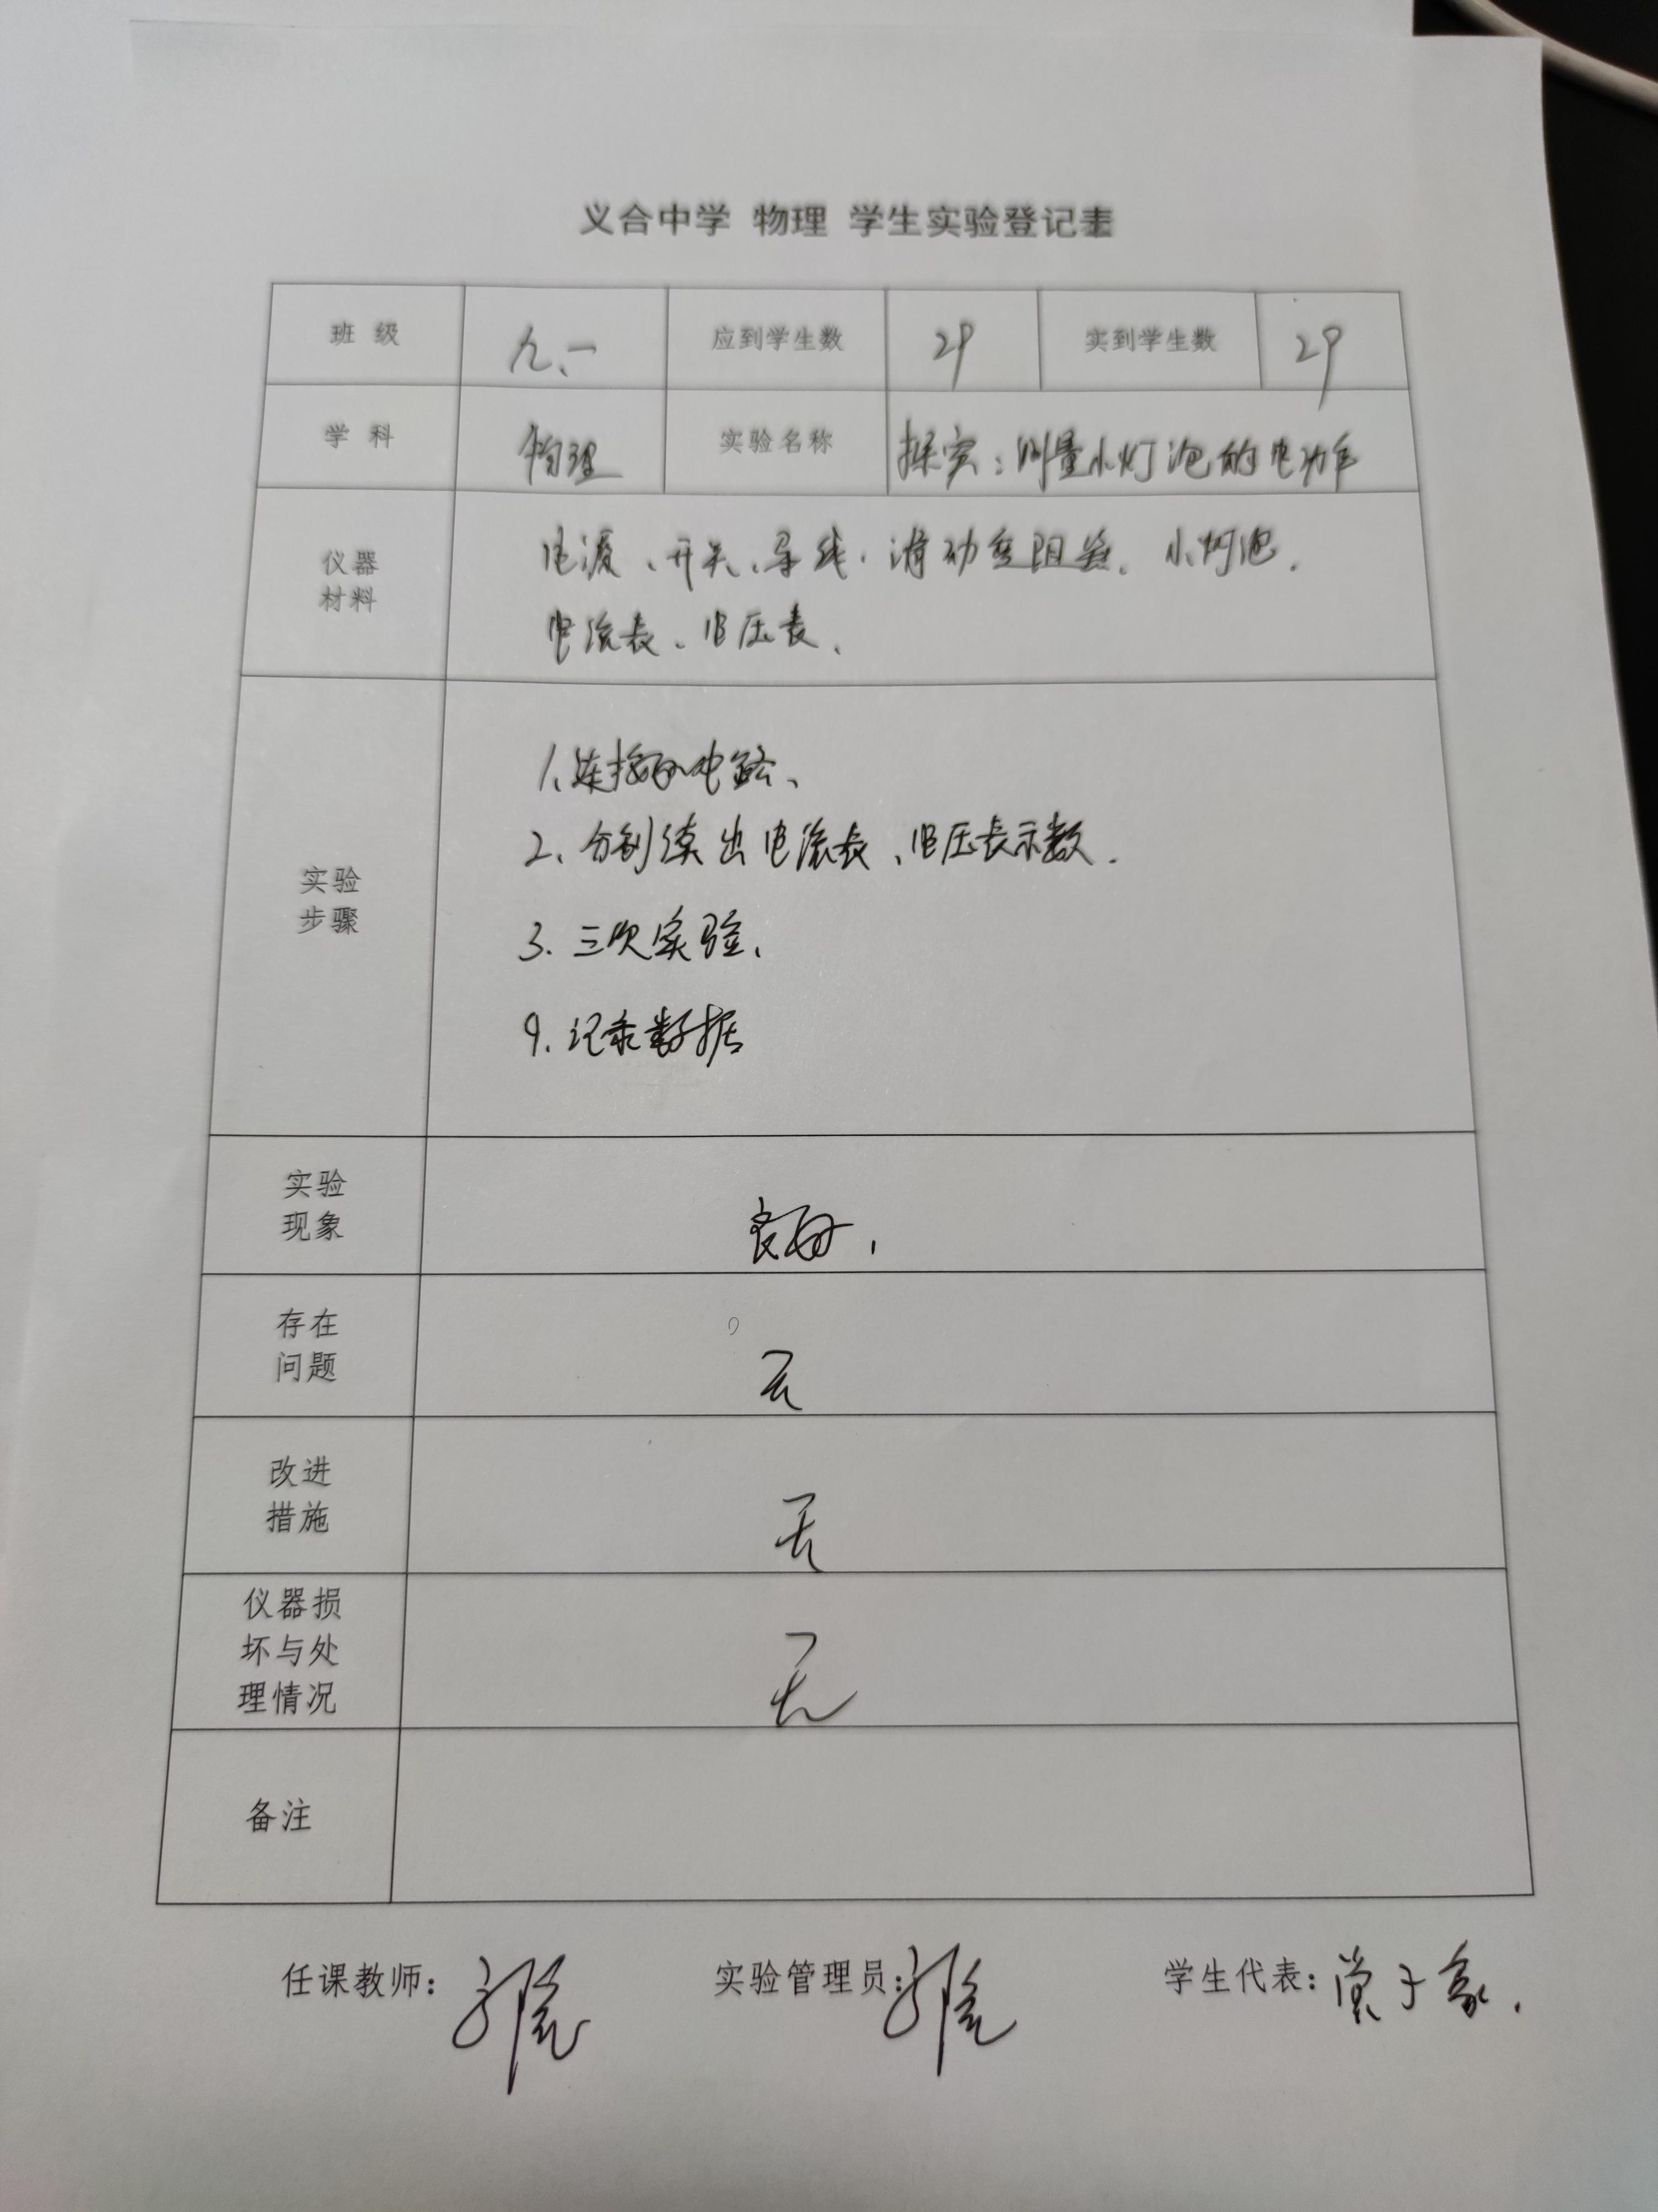 义合中学 物理 学生实验登记表
班 级 九、一 应到学生数 29 实到学生数 29
学 科 物理 实验名称 探究：测量小灯泡的电功率
仪器
材料
电源、开关、导线、滑动变阻器、小灯泡、
电流表、电压表、
实验
步骤
1、连接好电路、
2、分别读出电流表、电压表示数.
3. 三次实验、
4. 记录数据
实验
现象
良好，
存在
问题
无
改进
措施
无
仪器损
坏与处
理情况
无
备注
任课教师： 实验管理员： 学生代表：